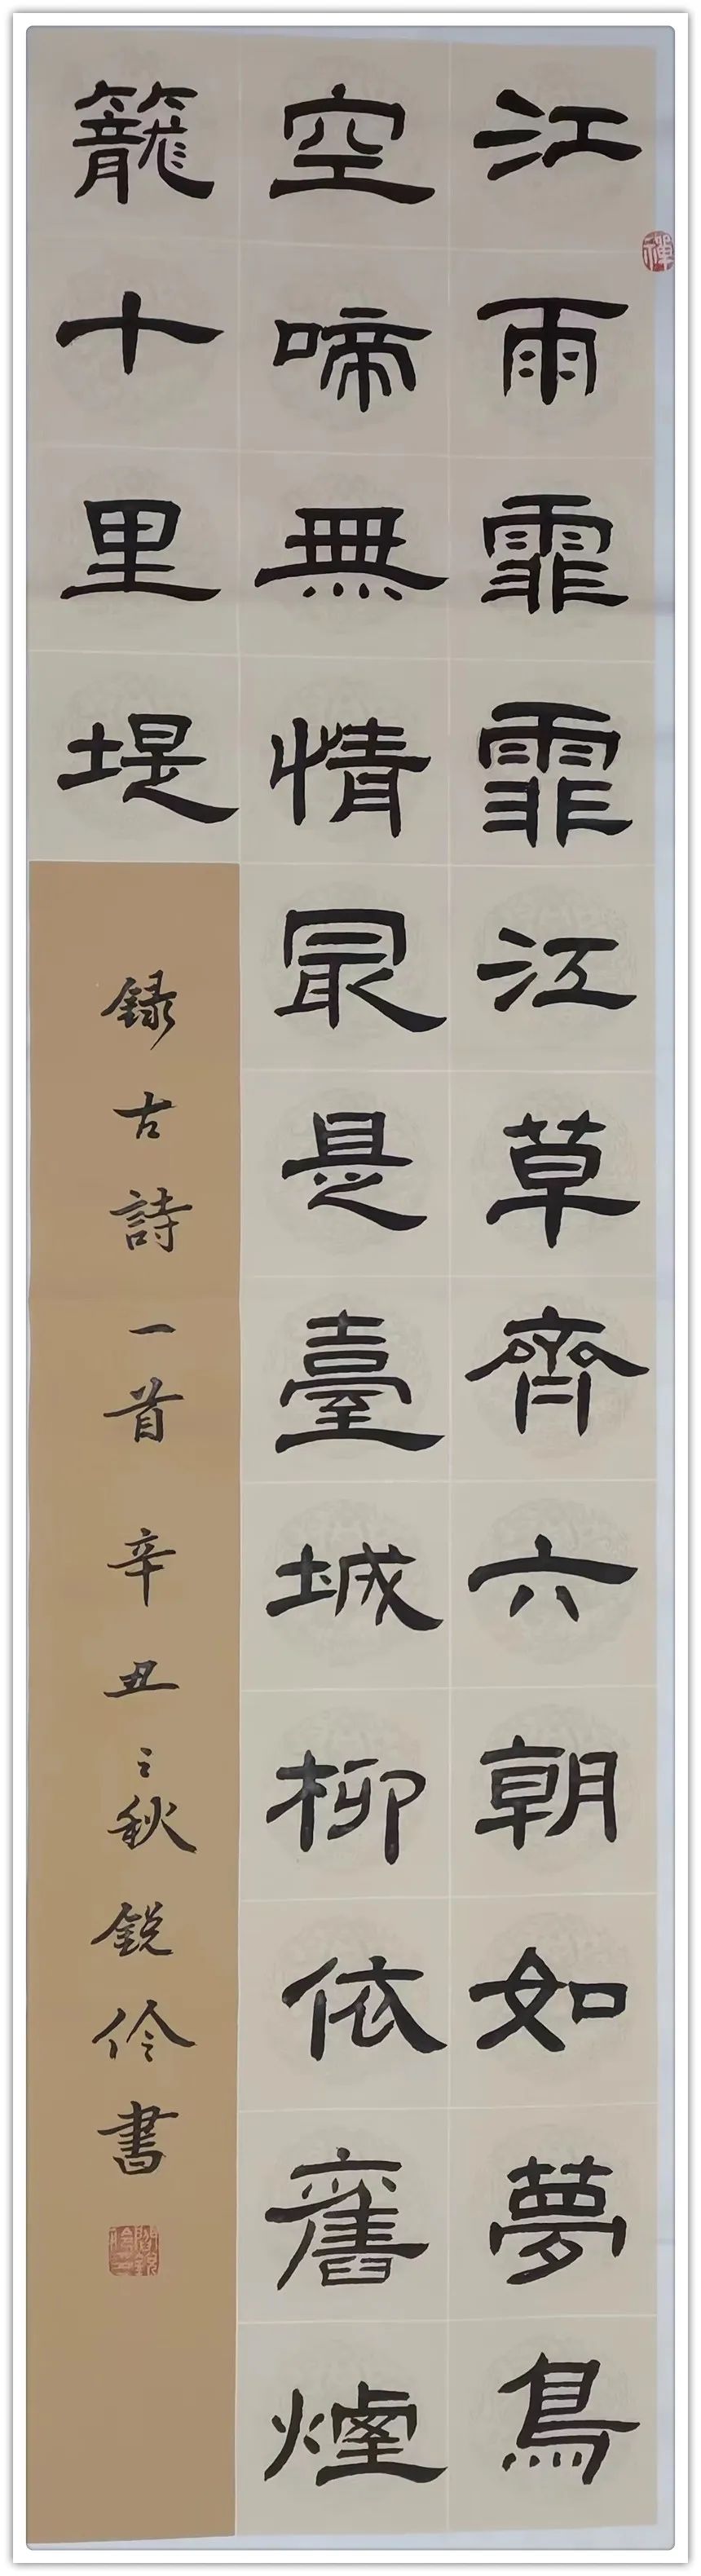 江雨霏霏江草齊六朝如夢鳥
空啼無情冣是臺城柳依舊煙
籠十里堤
録古詩一首辛丑之秋銳伶書
禪